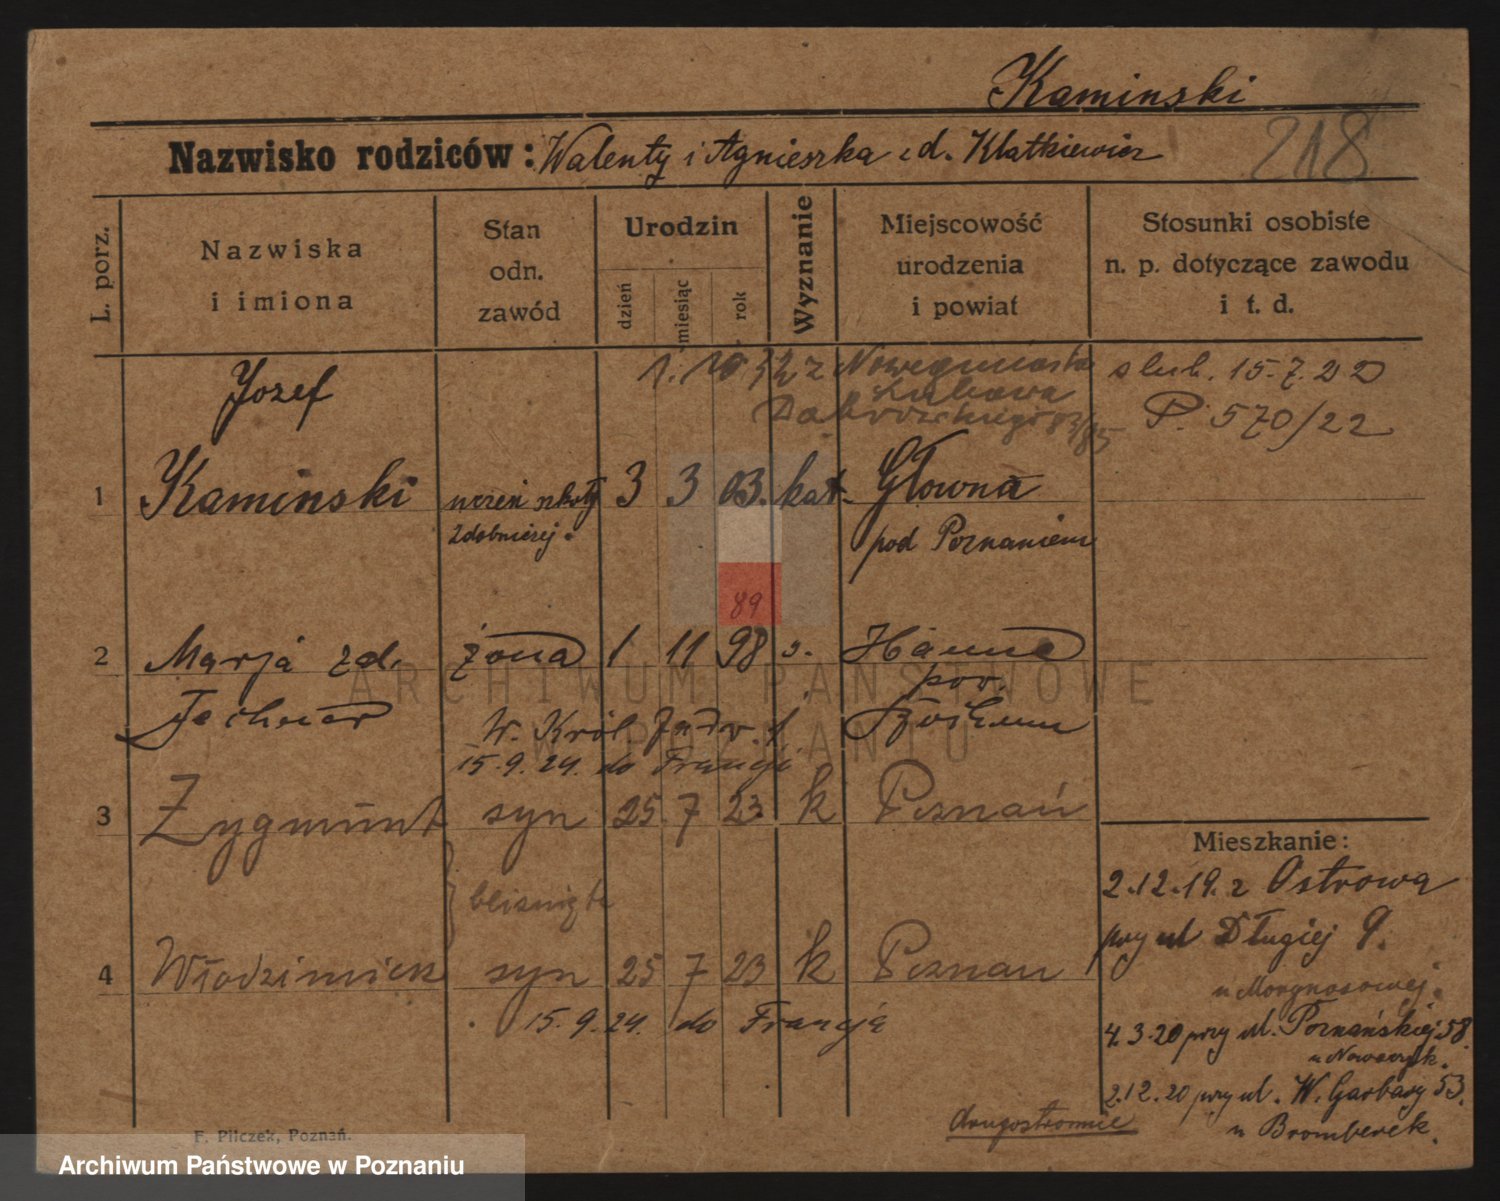 Kaminski
218
Nazwisko rodziców: Walenty i Agnieszka z d. Klatkiewicz
L. porz.
Nazwiska
i imiona
Stan
odn.
zawód
Urodzin
dzień
miesiąc
rok
Wyznanie
Miejscowość
urodzenia
i powiat
Stosunki osobiste
n. p. dotyczące zawodu
i t. d.
Józef
z Nowegomiasta
ślub. 15.7.22
P. 570/22
1 Kaminski uczeń szkoły 3 3 03. kat. Głowna
Zdobniczej. pod Poznaniem
89
2 Marja zd. żona 1 11 98 Hanne
pow.
Techner W. Król. Jadw. 1 Bochum
15.9.24. do Francji
3 Zygmunt syn 25 7 23 k Poznań
bliźnięta
4 Włodzimierz syn 25 7 23 k Poznań
15.9.24. do Francji
Mieszkanie:
2.12.19. z Ostrowa
przy ul Długiej 9.
4.3.20 przy ul. Poznańskiej 58.
u Nowaczyk.
2.12.20 przy ul. W. Garbary 53.
u Bromberek.
drugostronnie
F. Pilczek, Poznań.
ARCHIWUM PAŃSTWOWE
W POZNANIU
Archiwum Państwowe w Poznaniu